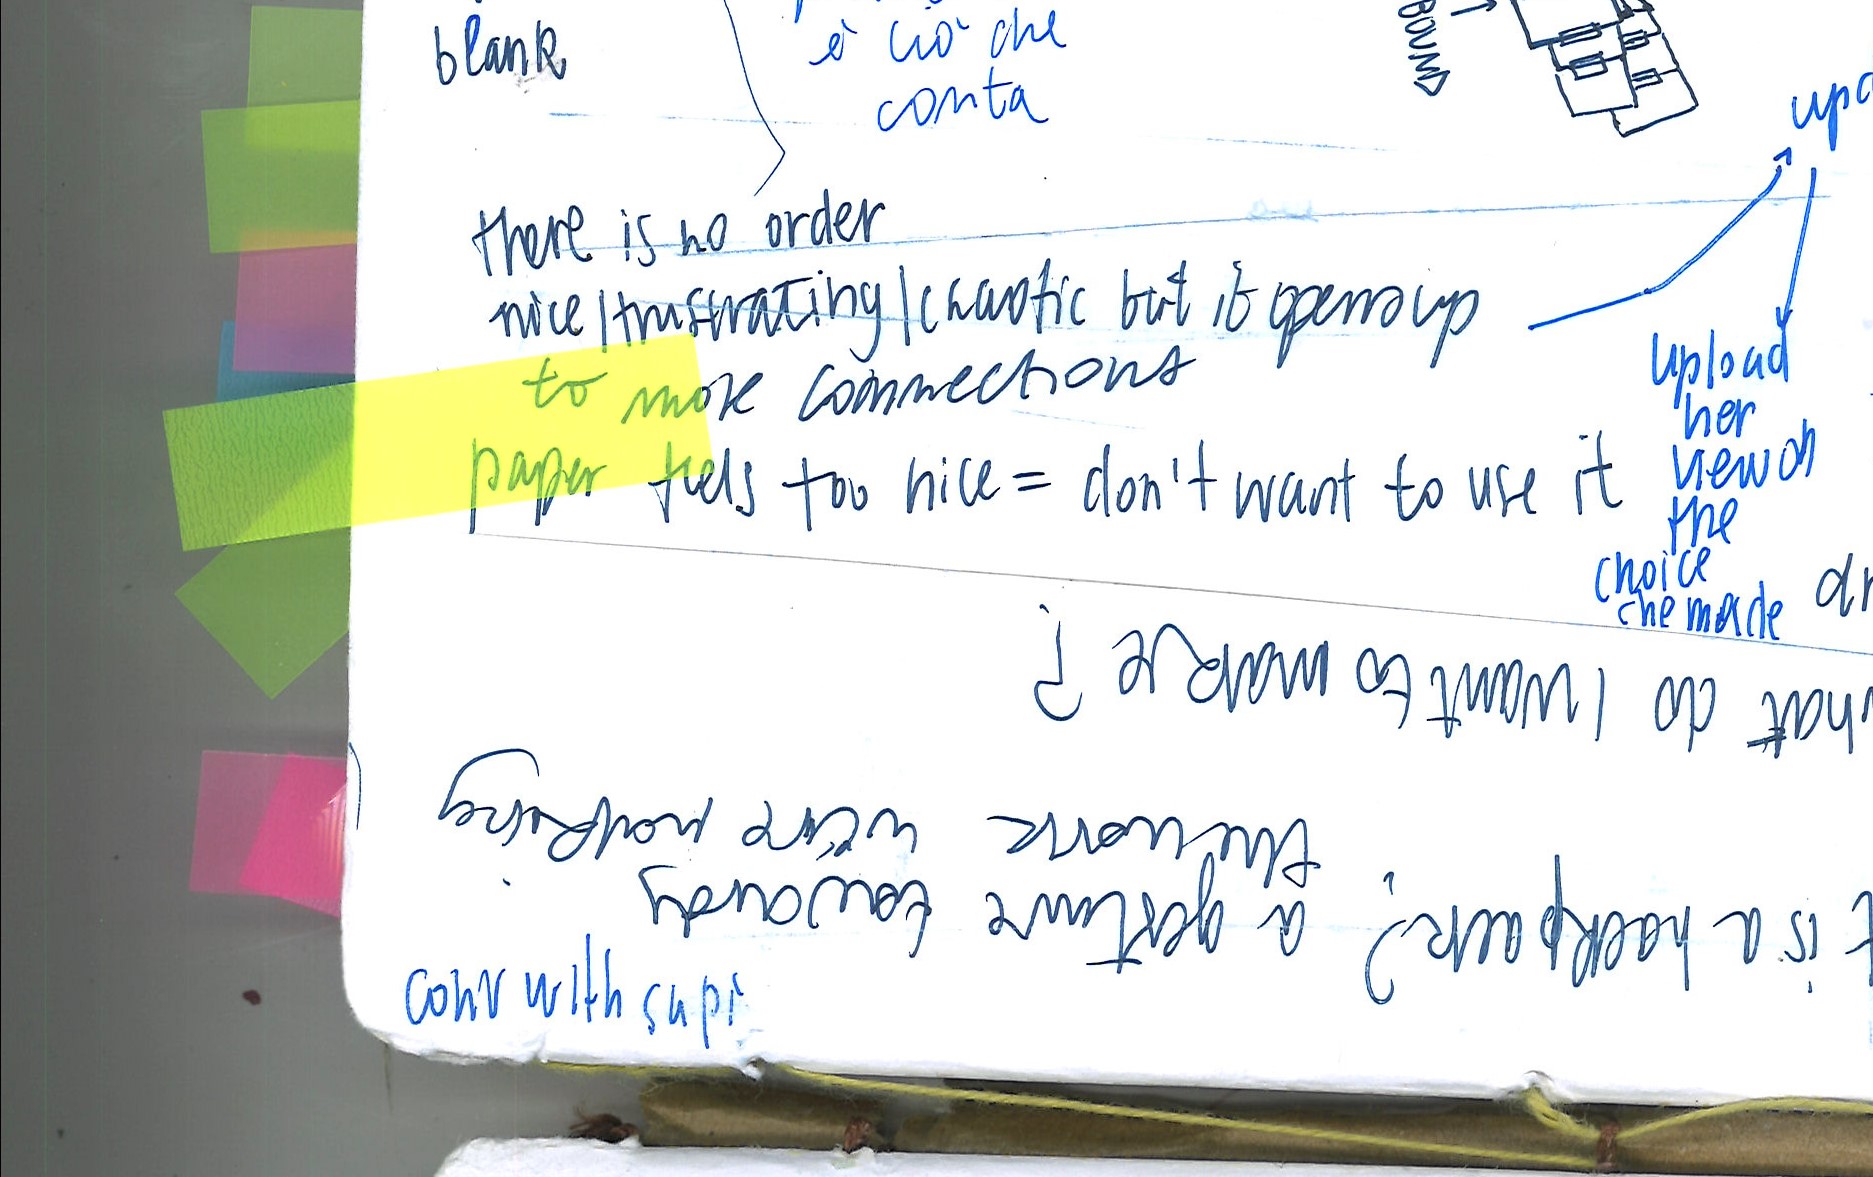 blank
è ciò che
conta
BOUND
there is no order
nice/frustrating/chaotic but it opens up
to more connections
paper feels too nice = don't want to use it
upload
her
view on
the
choice
che made
do I want to make?
is a backpack? a gesture towards
the work we're making
conv with supi